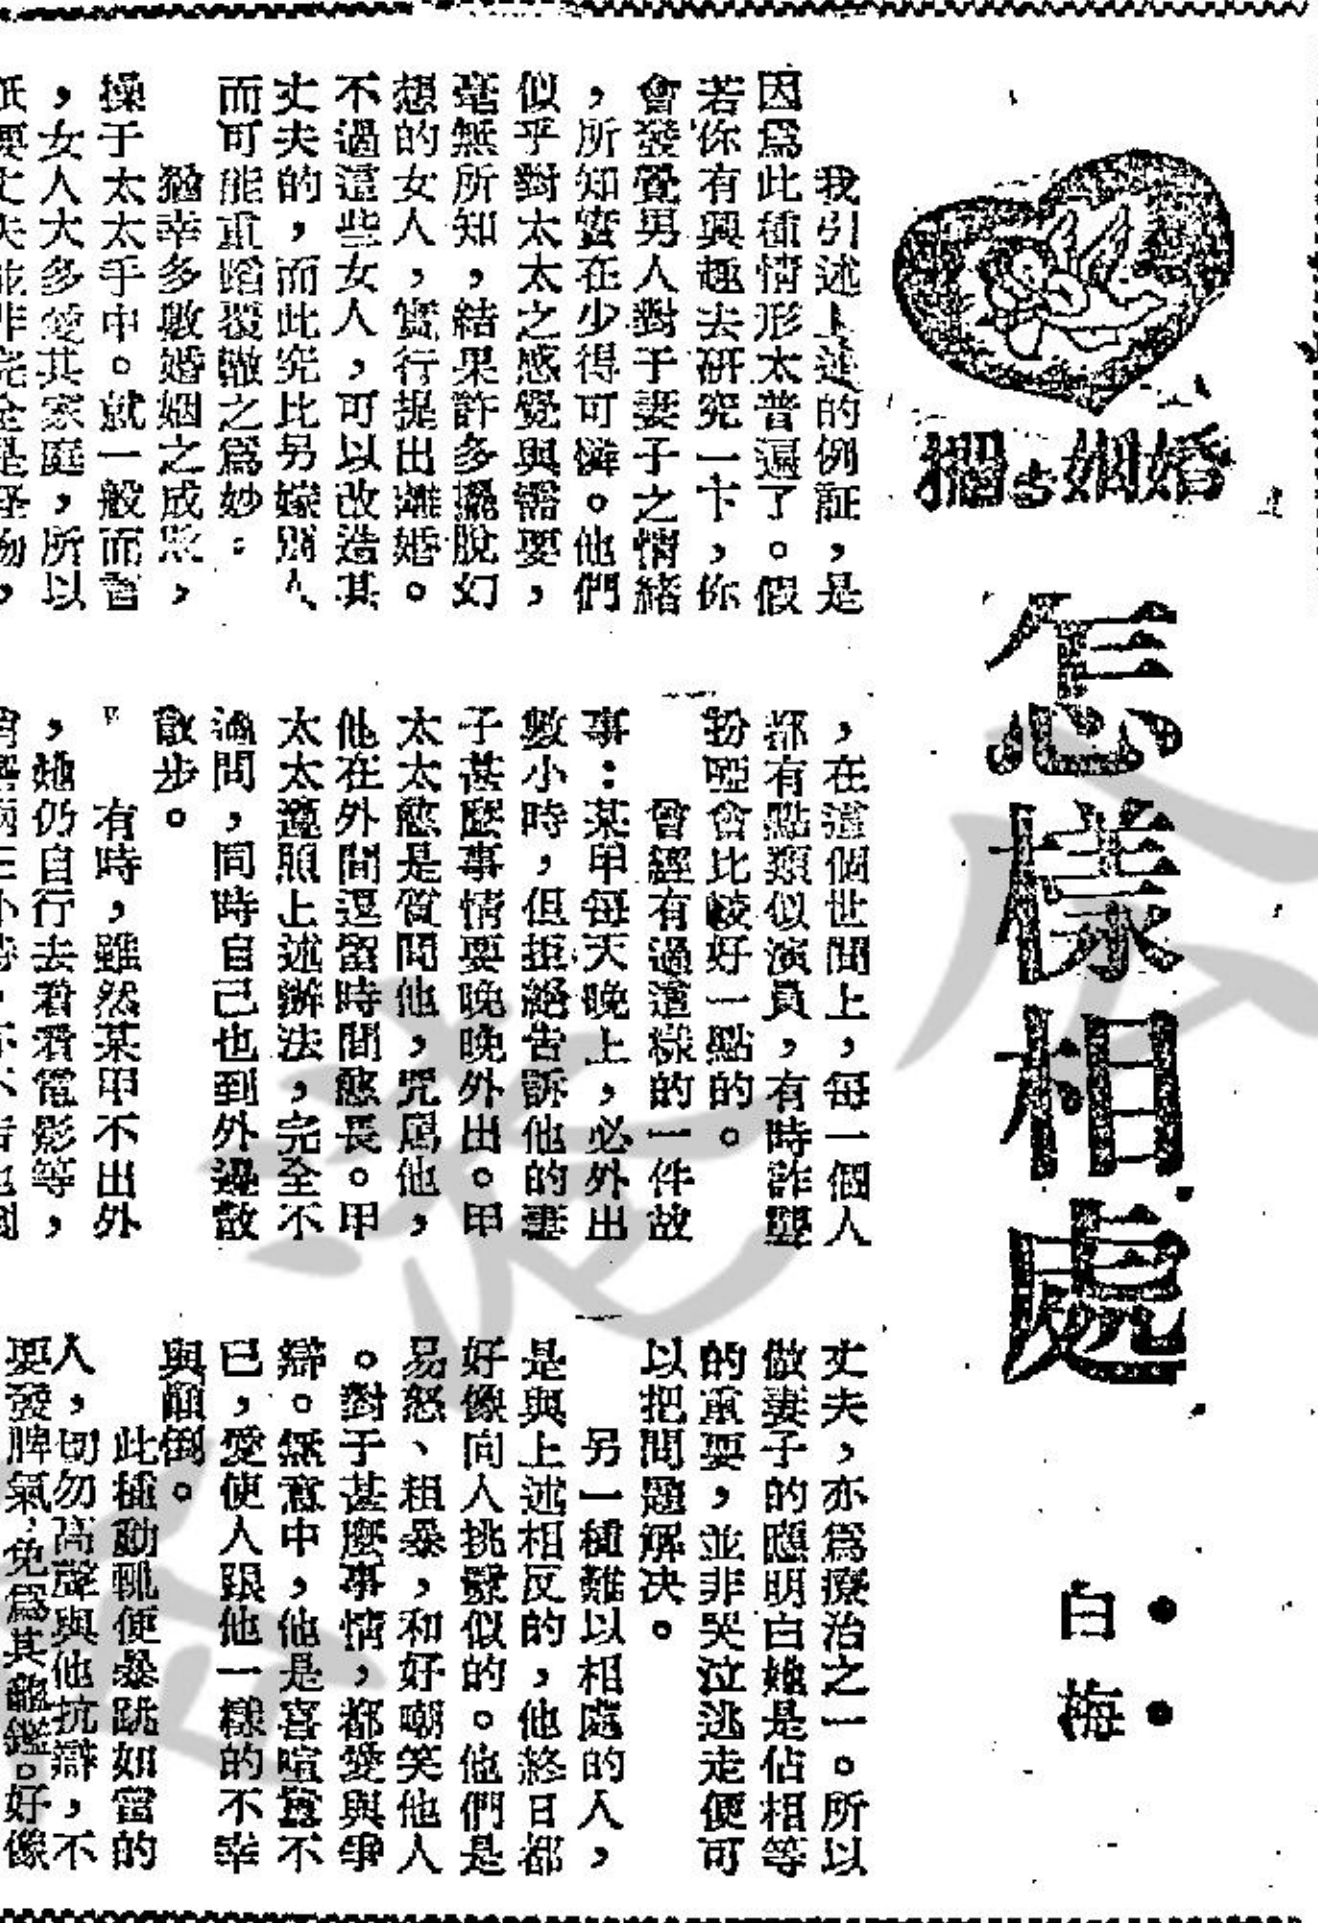 婚姻
怎樣相處
白梅
我引述上述的例証，是
因爲此種情形太普遍了。假
若你有興趣去研究一下，你
會發覺男人對于妻子之情緒
，所知實在少得可憐。他們
似乎對太太之感覺與需要，
毫無所知，結果許多擺脫幻
想的女人，實行提出離婚。
不過這些女人，可以改造其
丈夫的，而此究比另嫁別人
而可能重蹈覆轍之爲妙。
猶幸多數婚姻之成敗，
操于太太手中。就一般而言
，女人大多愛其家庭，所以
祇要丈夫能非完全是怪物，
，在這個世間上，每一個人
都有點類似演員，有時詐聾
扮啞會比較好一點的。
曾經有過這樣的一件故
事：某甲每天晚上，必外出
數小時，但拒絕告訴他的妻
子甚麼事情要晚晚外出。甲
太太愈是質問他，咒駡他，
他在外間逗留時間愈長。甲
太太遵照上述辦法，完全不
過問，同時自己也到外邊散
散步。
有時，雖然某甲不出外
，她仍自行去看看電影等，
丈夫，亦爲療治之一。所以
做妻子的應明白她是佔相等
的重要，並非哭泣逃走便可
以把問題解决。
另一種難以相處的人，
是與上述相反的，他終日都
好像向人挑釁似的。他們是
易怒、粗暴，和好嘲笑他人
。對于甚麼事情，都愛與爭
辯。無意中，他是喜喧嚣不
已，愛使人跟他一樣的不幸
與顚倒。
此種動輒便暴跳如雷的
人，切勿高聲與他抗辯，不
要發脾氣，免爲其龜鑑。好像